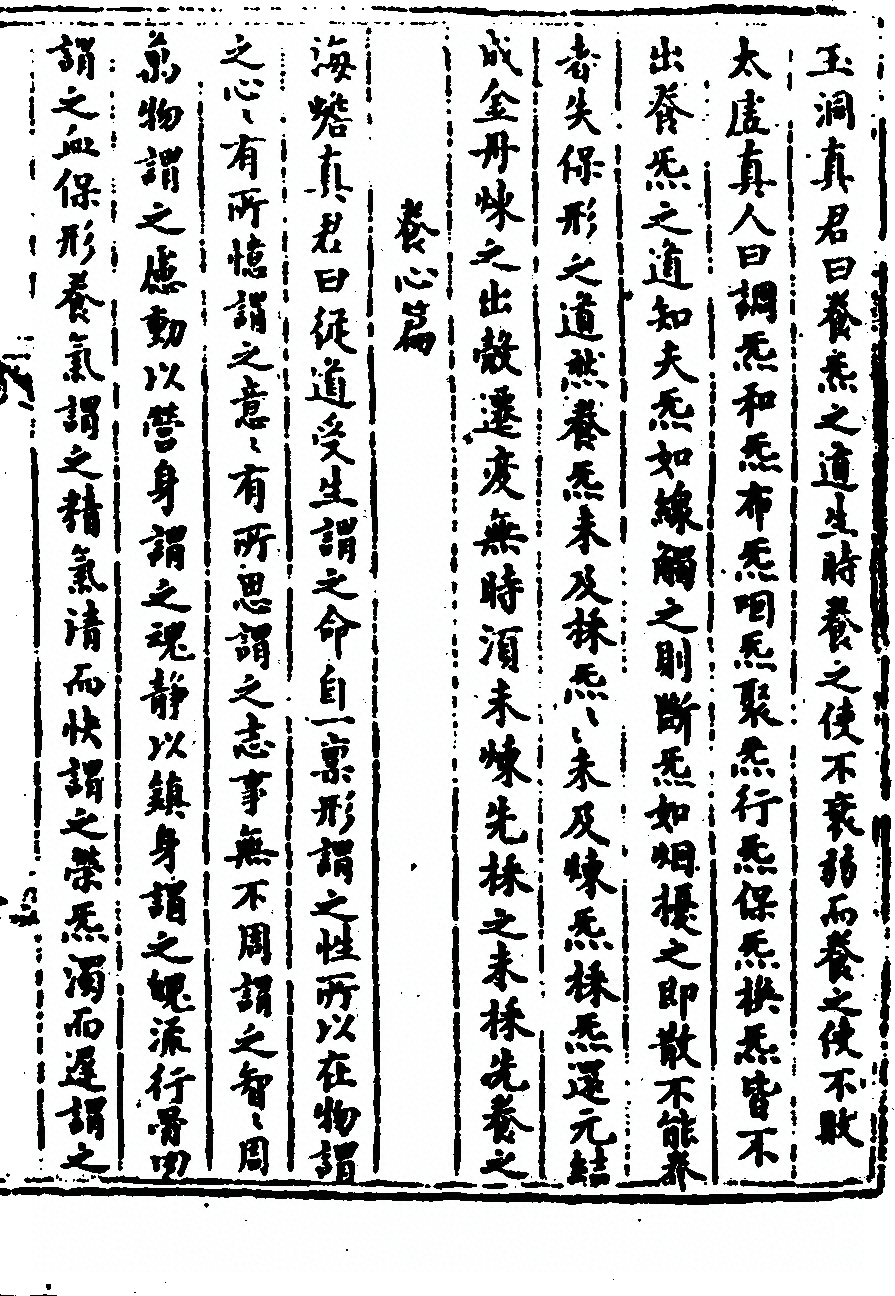 玉洞真君曰養炁之道生時養之使不衰弱而養之使不敗
太虛真人曰調炁和炁布炁咽炁聚炁行炁保炁換炁皆不
出養炁之道知夫炁如線觸之則斷炁如烟擾之即散不能養
者失保形之道然養炁未及採炁〻未及煉炁採炁還元結
成金丹煉之出殼遷变無時須未煉先採之未採先養之
養心篇
海蟾真君曰從道受生謂之命自一稟形謂之性所以在物謂
之心〻有所憶謂之意〻有所思謂之志事無不周謂之智〻周
萬物謂之慮動以營身謂之魂静以鎮身謂之魄流行骨肉
謂之血保形養氣謂之精氣清而快謂之榮炁濁而遲謂之